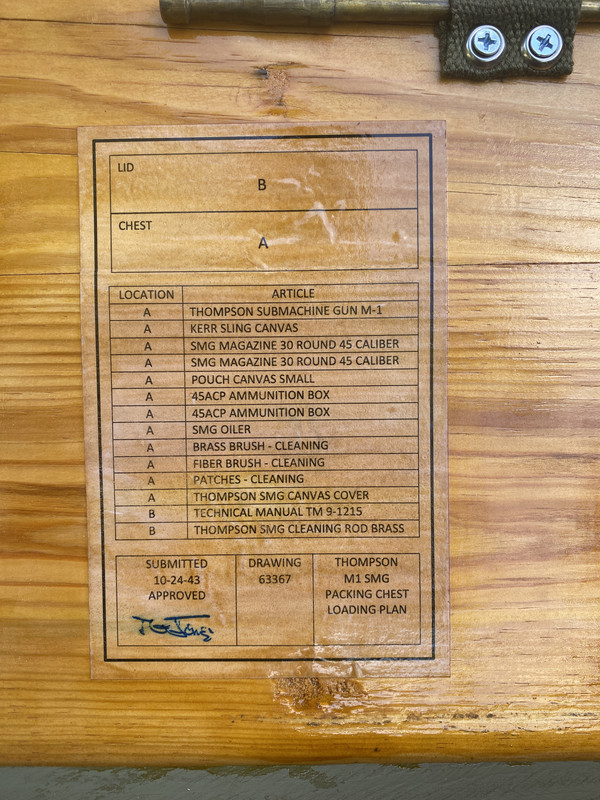 LID
B
CHEST
A
LOCATION ARTICLE
A THOMPSON SUBMACHINE GUN M-1
A KERR SLING CANVAS
A SMG MAGAZINE 30 ROUND 45 CALIBER
A SMG MAGAZINE 30 ROUND 45 CALIBER
A POUCH CANVAS SMALL
A 45ACP AMMUNITION BOX
A 45ACP AMMUNITION BOX
A SMG OILER
A BRASS BRUSH - CLEANING
A FIBER BRUSH - CLEANING
A PATCHES - CLEANING
A THOMPSON SMG CANVAS COVER
B TECHNICAL MANUAL TM 9-1215
B THOMPSON SMG CLEANING ROD BRASS
SUBMITTED
10-24-43
APPROVED
DRAWING
63367
THOMPSON
M1 SMG
PACKING CHEST
LOADING PLAN